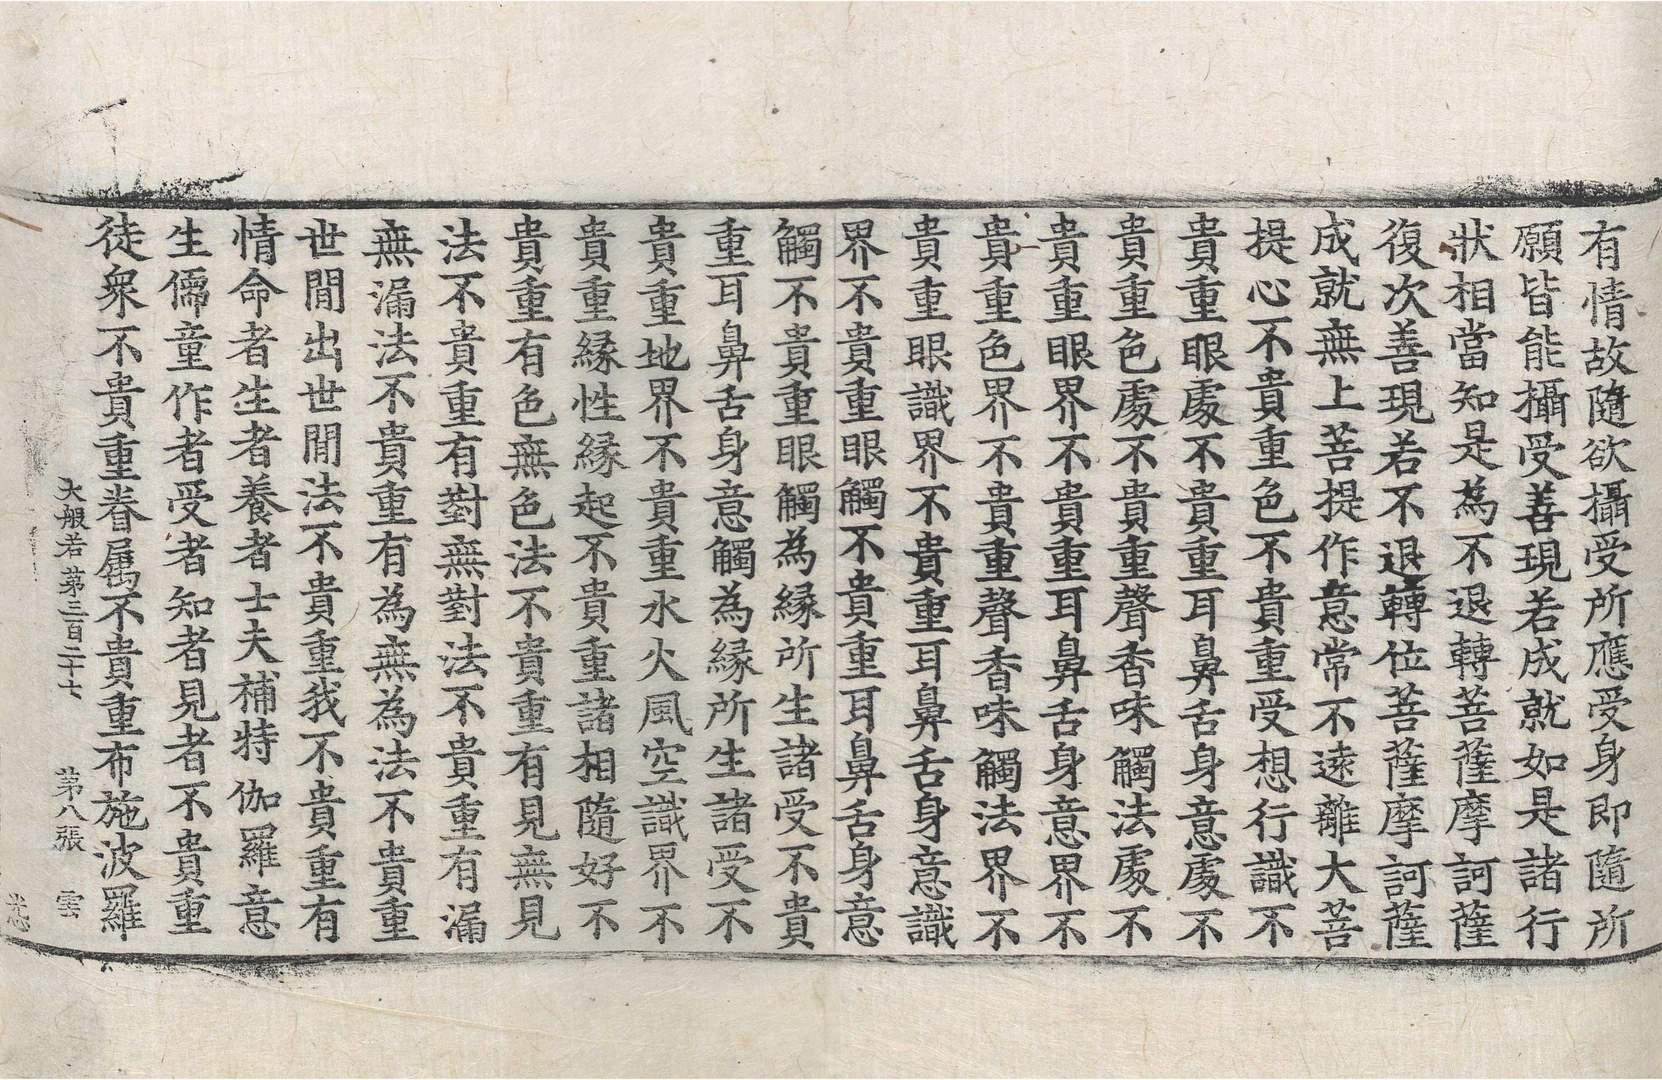 有情故隨欲攝受所應受身即隨所
願皆能攝受善現若成就如是諸行
狀相當知是為不退轉菩薩摩訶薩
復次善現若不退轉位菩薩摩訶薩
成就無上菩提作意常不遠離大菩
提心不貴重色不貴重受想行識不
貴重眼處不貴重耳鼻舌身意處不
貴重色處不貴重聲香味觸法處不
貴重眼界不貴重耳鼻舌身意界不
貴重色界不貴重聲香味觸法界不
貴重眼識界不貴重耳鼻舌身意識
界不貴重眼觸不貴重耳鼻舌身意
觸不貴重眼觸為緣所生諸受不貴
重耳鼻舌身意觸為緣所生諸受不
貴重地界不貴重水火風空識界不
貴重緣性緣起不貴重諸相隨好不
貴重有色無色法不貴重有見無見
法不貴重有對無對法不貴重有漏
無漏法不貴重有為無為法不貴重
世間出世間法不貴重我不貴重有
情命者生者養者士夫補特伽羅意
生儒童作者受者知者見者不貴重
徒眾不貴重眷属不貴重布施波羅
大般若第三百二十七 第八張 雲